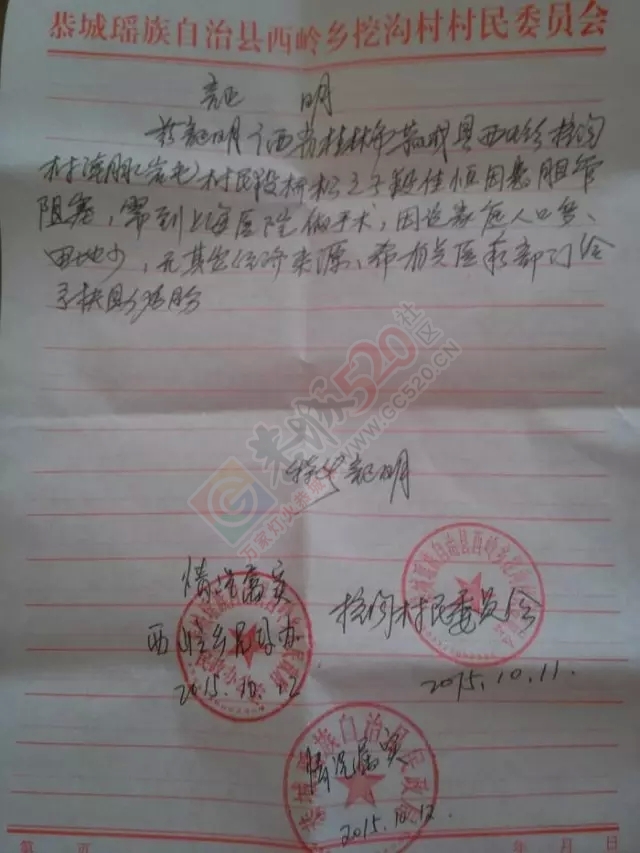 恭城瑶族自治县西岭乡挖沟村村民委员会
証 明
兹証明广西省桂林市恭城县西岭乡挖沟
村 村民段 之子段佳恒因患胆管
阻塞,需到上海医院做手术,因该家庭人口多、
田地少,无其它经济来源、希有关医疗部门给
予
特此証明
恭城520社区
WWW.GC520.CN
万家灯火
情况属实
西岭乡民政办
2015.10.12
挖沟村民委员会
2015.10.11.
恭城瑶族自治县民政局
情况属实
2015.10.12
第 页
年 月 日